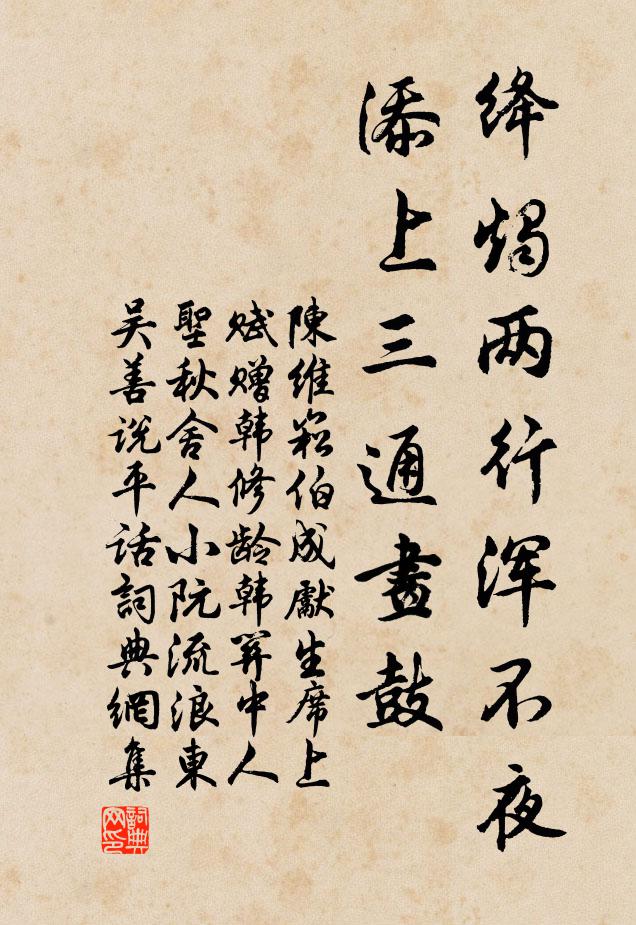 绛烛两行浑不夜
添上三通畫鼓
陳維崧伯成獻生席上
赋赠韩修龄韩关中人
聖秋舍人小阮流浪東
吴善说平话詞典網集
詞典
网印